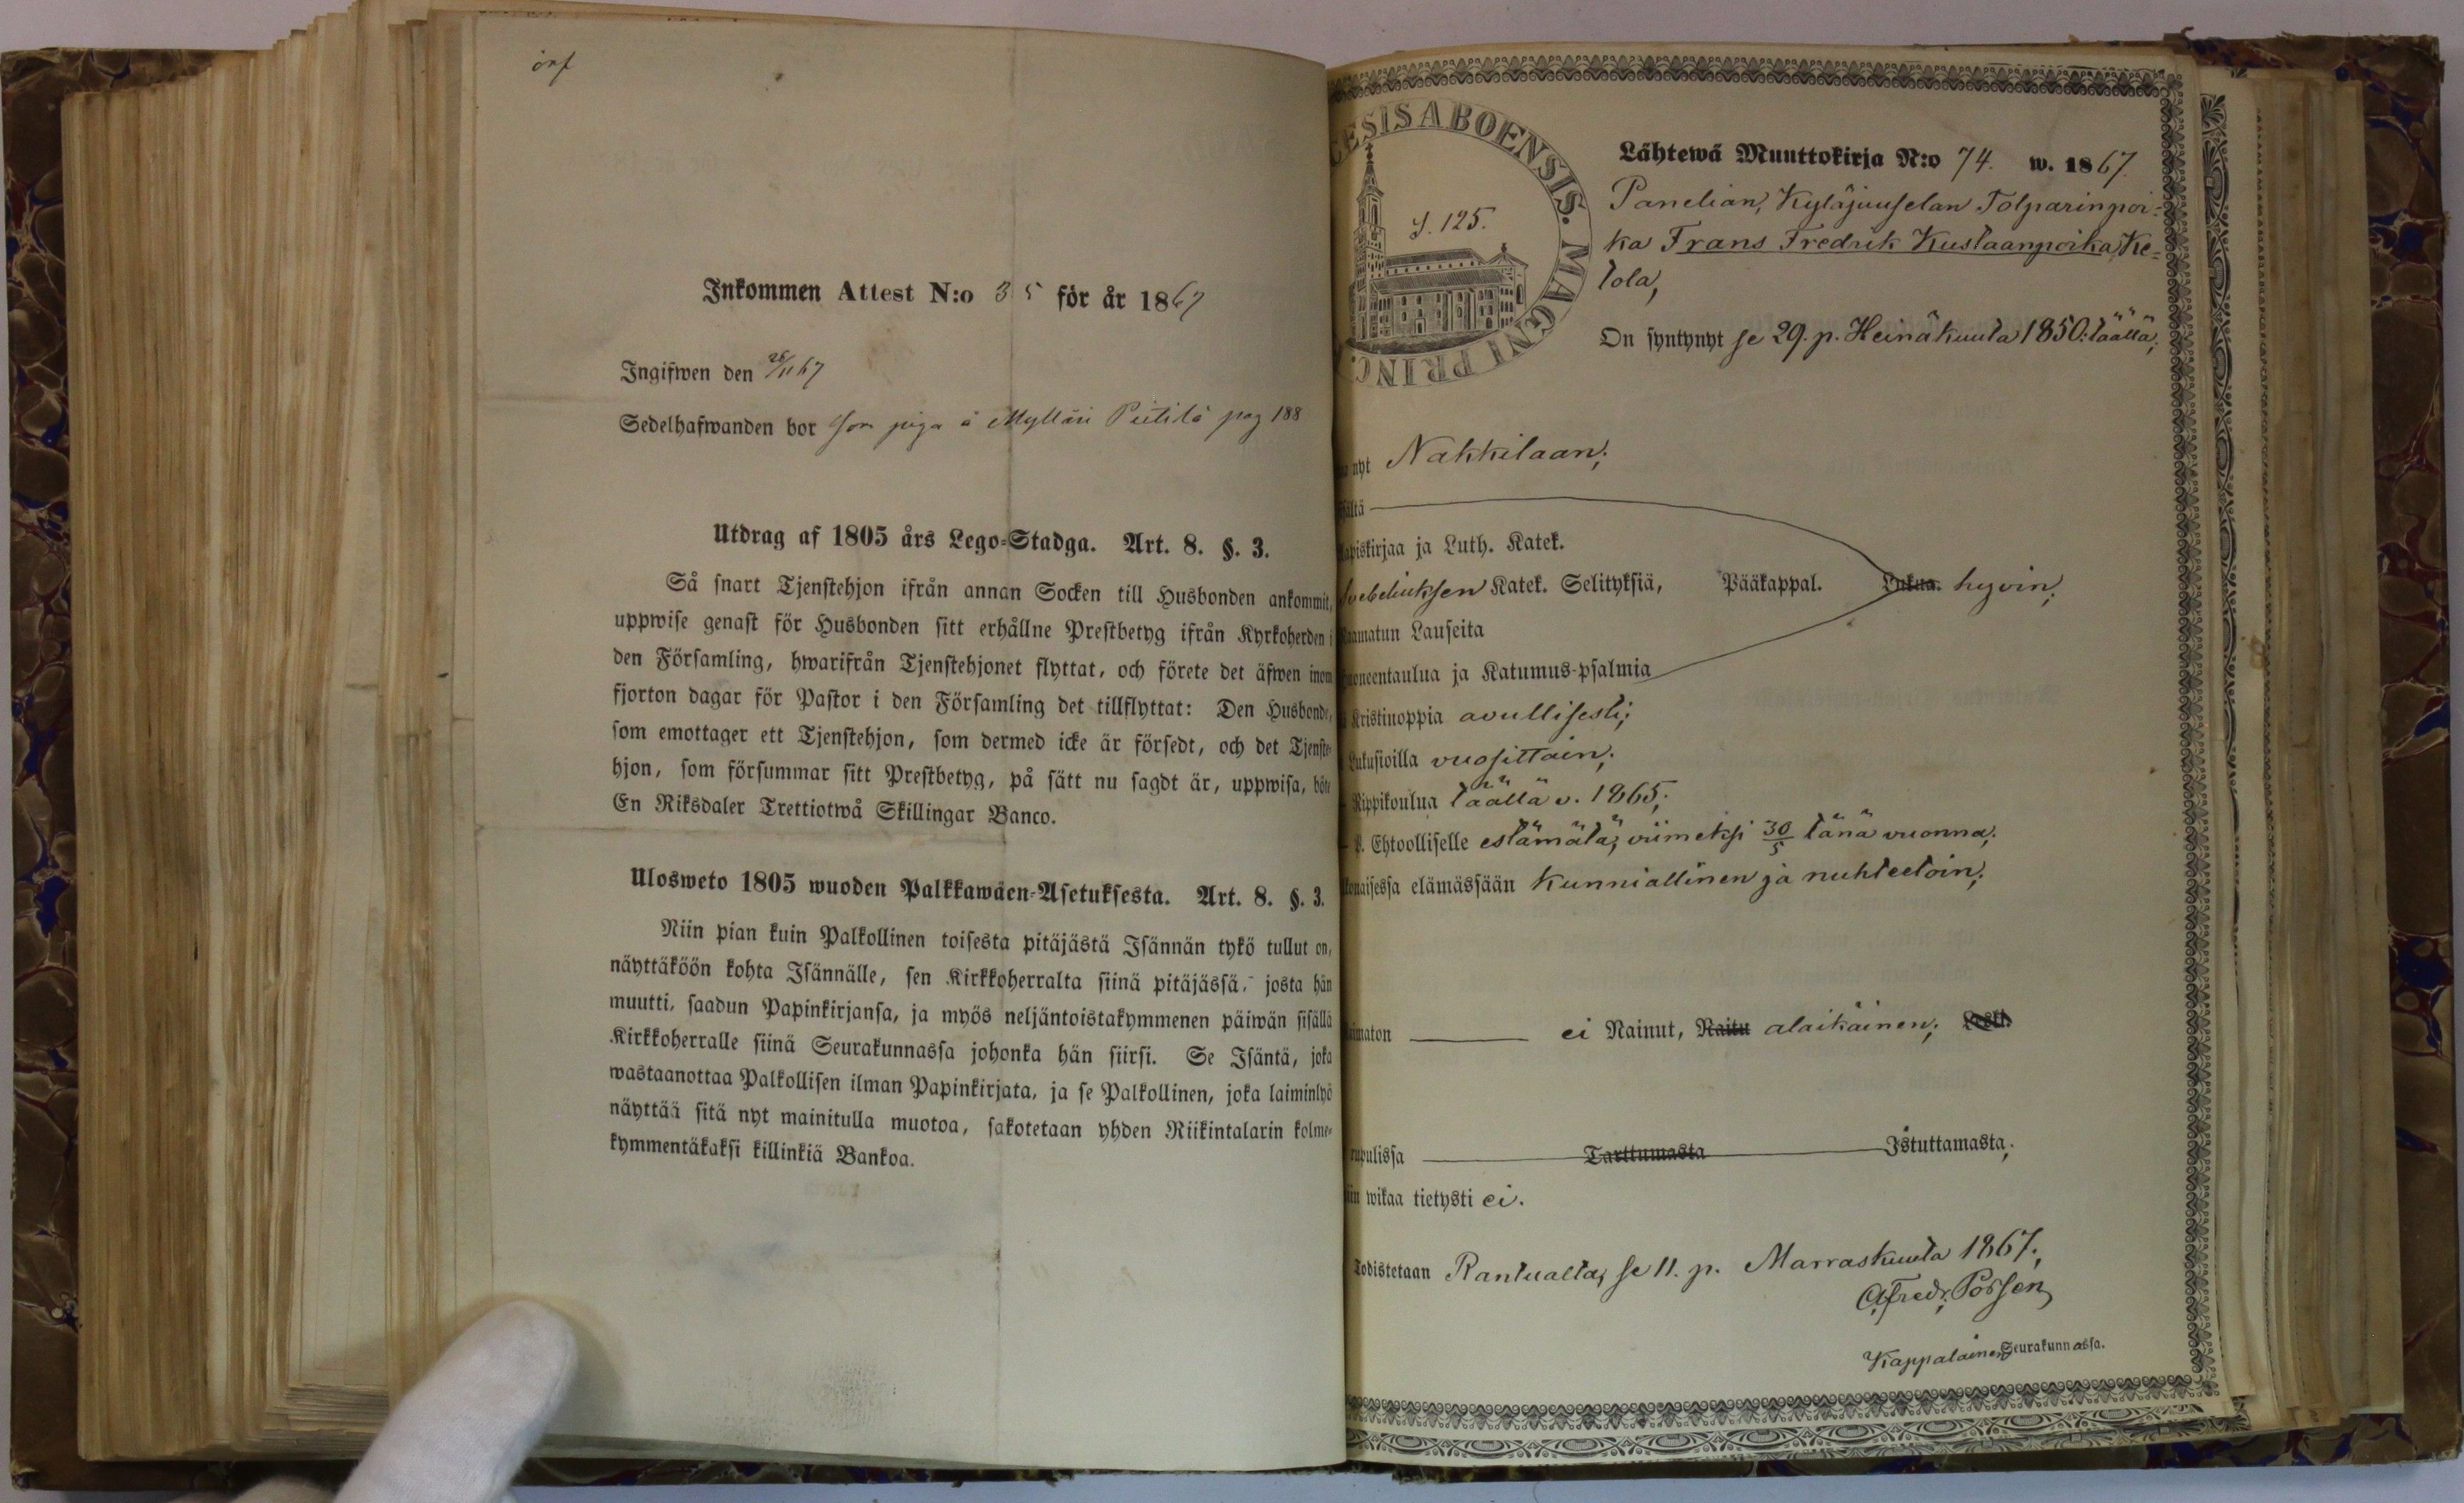 Inkommen Attest N:o 35 för år 1867
Ingifwen den 26/11 67
Sedelhafwanden bor som piga å Mylläri Pietilä pag 188
Utdrag af 1805 års Lego-Stadga. Art. 8. §. 3.
Så snart Tjenstehjon ifrån annan Socken till Husbonden ankommit,
uppwise genast för Husbonden sitt erhållne Prestbetyg ifrån Kyrkoherden i
den Församling, hwarifrån Tjenstehjonet flyttat, och förete det äfwen inom
fjorton dagar för Pastor i den Församling det tillflyttat: Den Husbonde,
som emottager ett Tjenstehjon, som dermed icke är försedt, och det Tjenste-
hjon, som försummar sitt Prestbetyg, på sätt nu sagdt är, uppwisa, böte
En Riksdaler Trettiotwå Skillingar Banco.
Ulosweto 1805 wuoden Palkkawäen-Asetuksesta. Art. 8. §. 3.
Niin pian kuin Palkollinen toisesta pitäjästä Isännän tykö tullut on,
näyttäköön kohta Isännälle, sen Kirkkoherralta siinä pitäjässä, josta hän
muutti, saadun Papinkirjansa, ja myös neljäntoistakymmenen päiwän sisällä
Kirkkoherralle siinä Seurakunnassa johonka hän siirsi. Se Isäntä, joka
wastaanottaa Palkollisen ilman Papinkirjata, ja se Palkollinen, joka laiminlyö
näyttää sitä nyt mainitulla muotoa, sakotetaan yhden Riikintalarin kolme-
kymmentäkaksi killinkiä Bankoa.
ESIS ABOENSIS. MAGNI PRINC.
S. 125.
Lähtewä Muuttokirja N:o 74. w. 1867.
Panelian, Kyläjuuselan Tolparinpoi-
ka Frans Fredrik Kustaanpoika Ke-
tola,
On syntynyt se 29. p. Heinäkuuta 1850. täällä;
nyt Nakkilaan;
ältä
apiskirjaa ja Luth. Katek.
Svebeliuksen Katek. Selityksiä, Pääkappal. Lukua. hyvin;
aamatun Lauseita
oneentaulua ja Katumus-psalmia
Kristinoppia avullisesti;
Lukusioilla vuosittain;
Rippikoulua täällä v. 1865;
P. Ehtoolliselle estämätä; viimeksi 30/5 tänä vuonna;
onaisessa elämässään kunniallinen ja nuhteetoin;
imaton ei Nainut, Naitu alaikäinen; Leski.
upulissa Tarttumasta Istuttamasta;
iin wikaa tietysti ei.
Todistetaan Rantualta, se 11. p. Marraskuuta 1867.
A. Fredr. Porsen
Kappalainen Seurakunnassa.